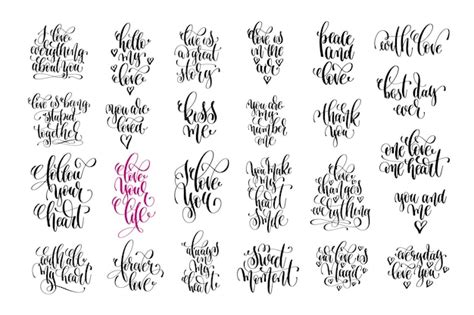 I love
everything
about you
hello
my
love
love is a
great
story
love is
in the
air
peace
and
love
with love
best day
ever
love is being
stupid
together
you are
loved
kiss
me
you are
my
number
one
thank
you
one love
one heart
follow
your
heart
love
your
life
I love
you
you make
my
heart
smile
love
changes
everything
you and
me
with all
my heart
forever
love
always
in my
heart
Sweet
moment
our love is
magic
everyday
love you